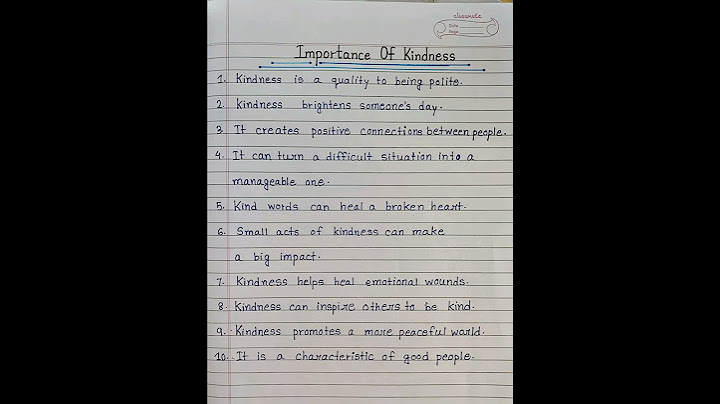 classmate
Date
Page
Importance Of Kindness
1. Kindness is a quality to being polite.
2. Kindness brightens someone's day.
3. It creates positive connections between people.
4. It can turn a difficult situation into a
manageable one.
5. Kind words can heal a broken heart.
6. Small acts of kindness can make
a big impact.
7. Kindness helps heal emotional wounds.
8. Kindness can inspire others to be kind.
9. Kindness promotes a more peaceful world.
10. It is a characteristic of good people.